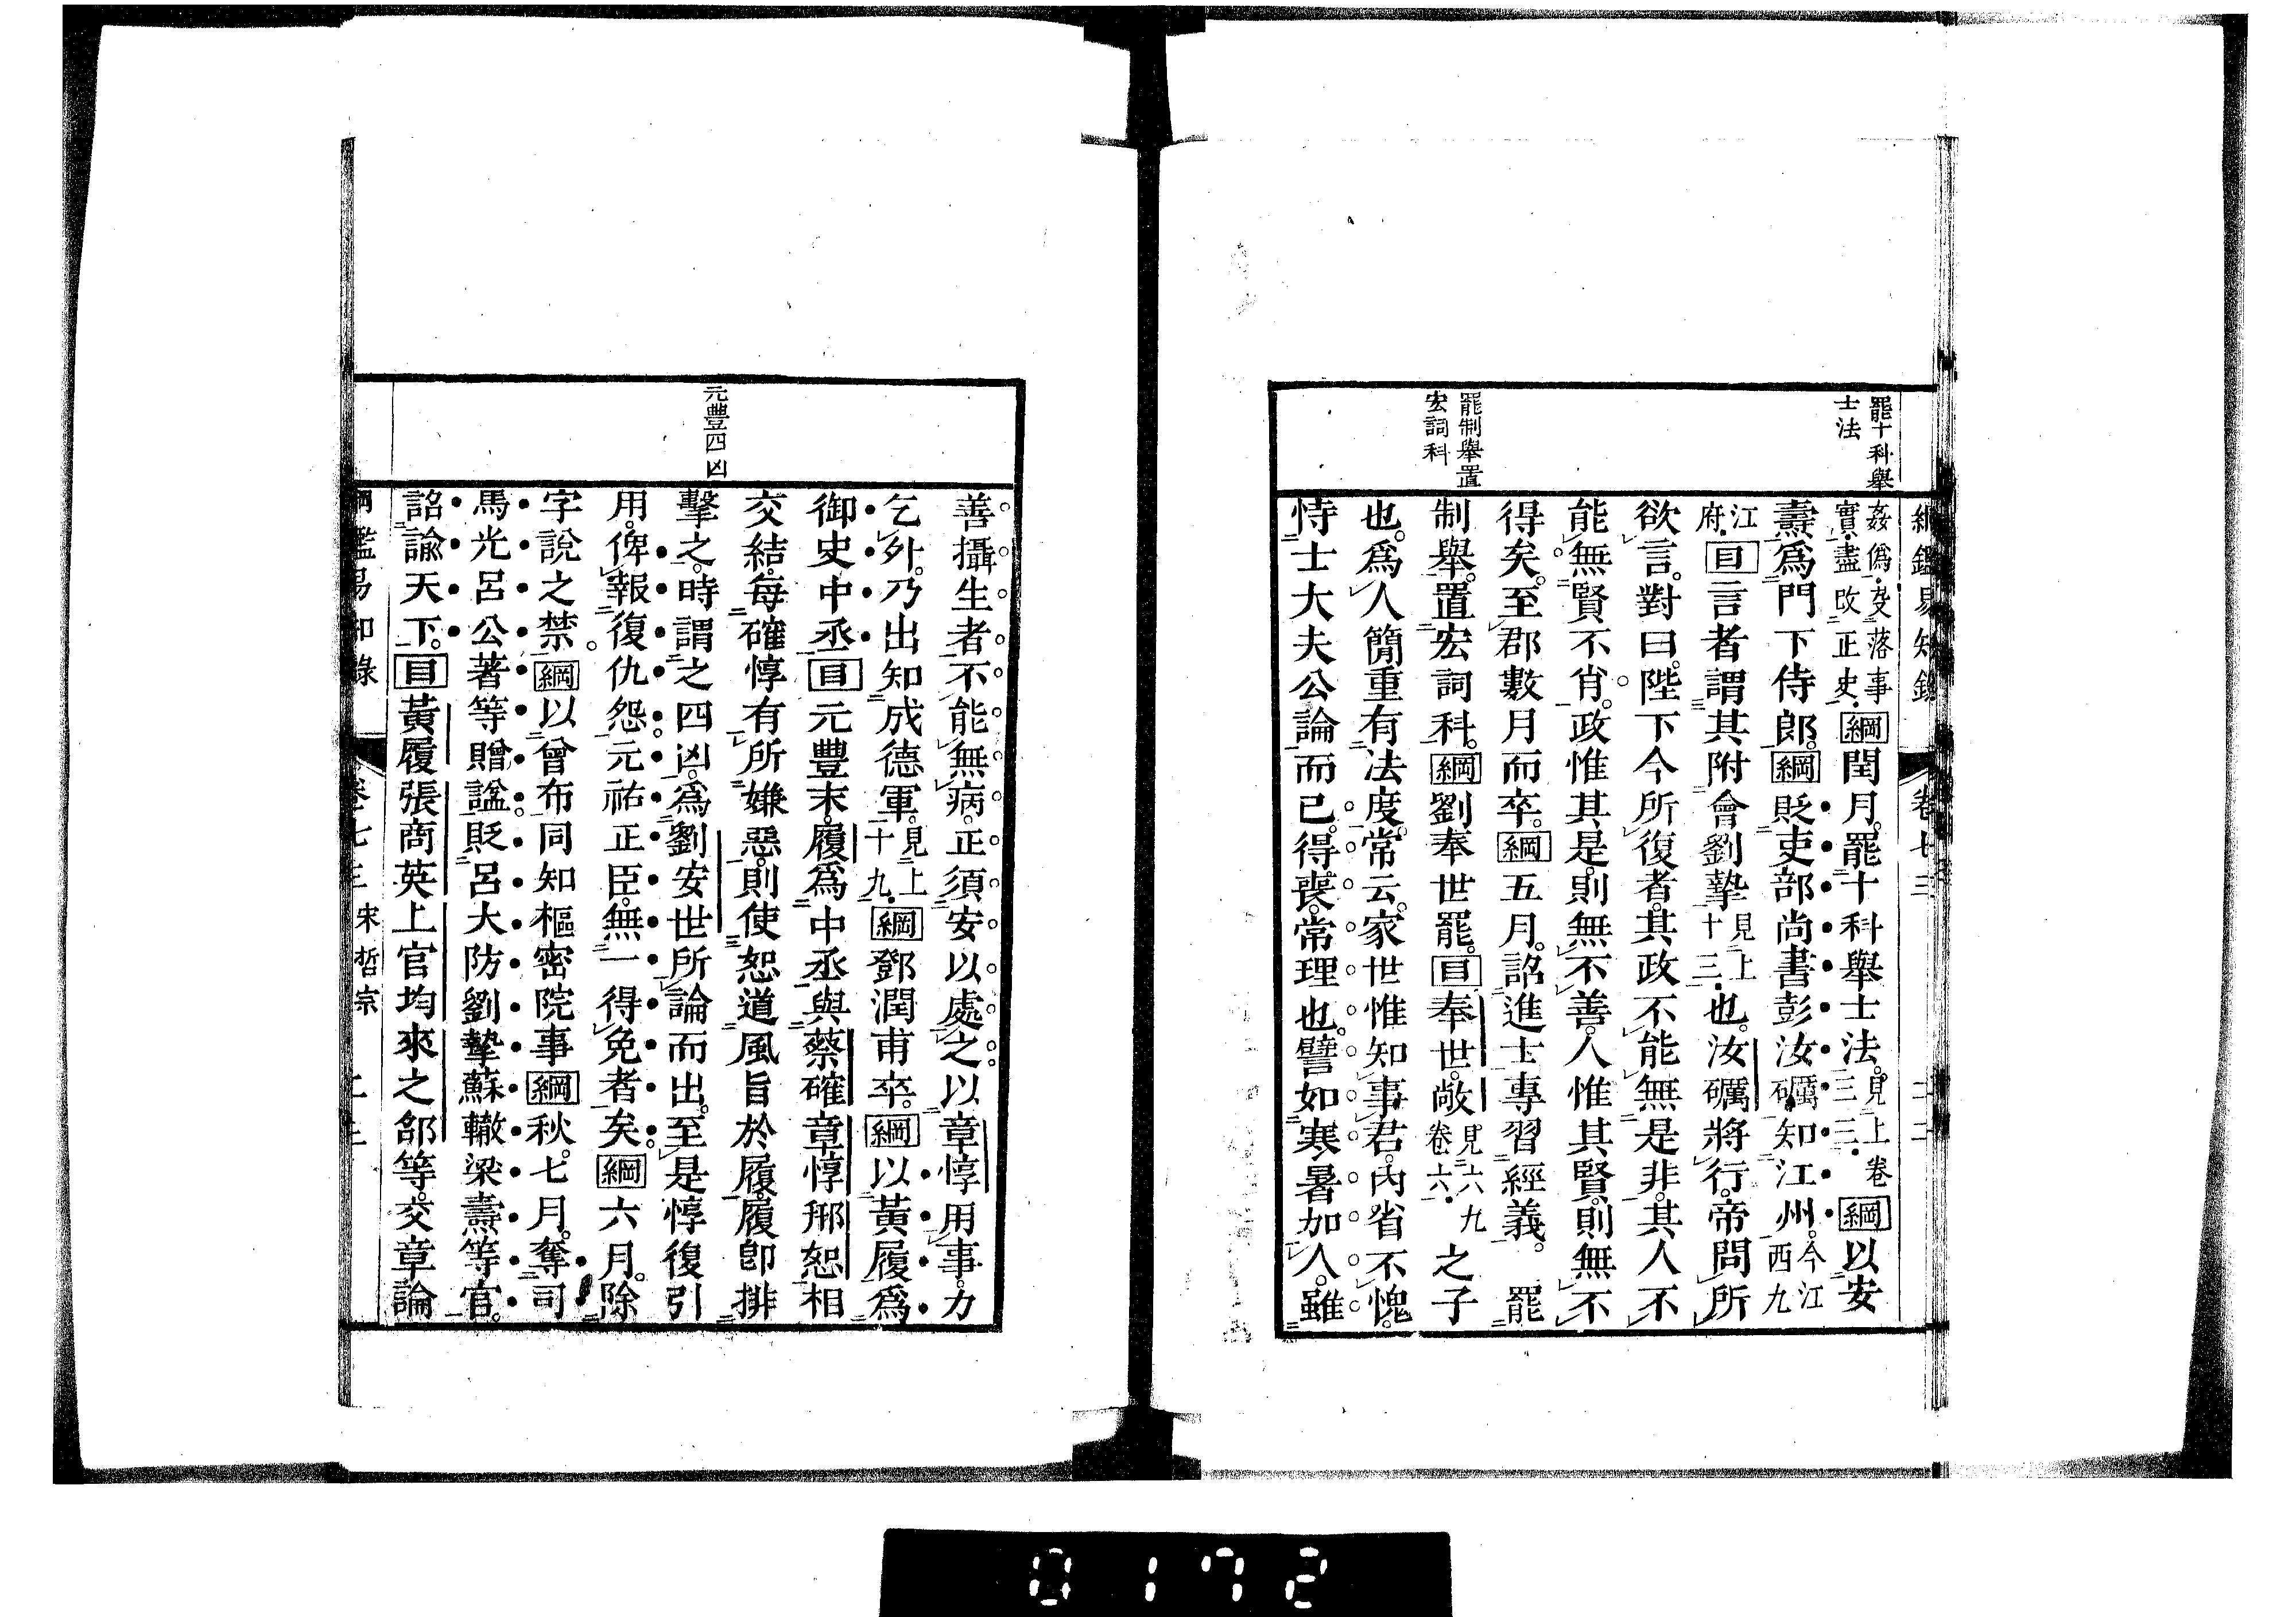 罷十科舉
士法
罷制舉置
宏詞科
綱鑑易知錄 卷七三
姦僞夌落事
實盡改正史綱閏月罷十科舉士法見上卷三三綱以安
燾爲門下侍郎綱貶吏部尚書彭汝礪知江州今江西九
江府目言者謂其附會劉摯見上十三也汝礪將行帝問所
欲言對曰陛下今所復者其政不能無是非其人不
能無賢不肖政惟其是則無不善人惟其賢則無不
得矣至郡數月而卒綱五月詔進士專習經義 罷
制舉置宏詞科綱劉奉世罷目奉世敞見六九卷六之子
也爲人簡重有法度常云家世惟知事君內省不愧
恃士大夫公論而已得喪常理也譬如寒暑加人雖
元豐四凶
善攝生者不能無病正須安以處之以章惇用事力
乞外乃出知成德軍見上十九綱鄧潤甫卒綱以黃履爲
御史中丞目元豐末履爲中丞與蔡確章惇邢恕相
交結每確惇有所嫌惡則使恕道風旨於履履卽排
擊之時謂之四凶爲劉安世所論而出至是惇復引
用俾報復仇怨元祐正臣無一得免者矣綱六月除
字說之禁綱以曾布同知樞密院事綱秋七月奪司
馬光呂公著等贈諡貶呂大防劉摯蘇轍梁燾等官
詔諭天下目黃履張商英上官均來之邵等交章論
綱鑑易知錄 卷七三 宋哲宗